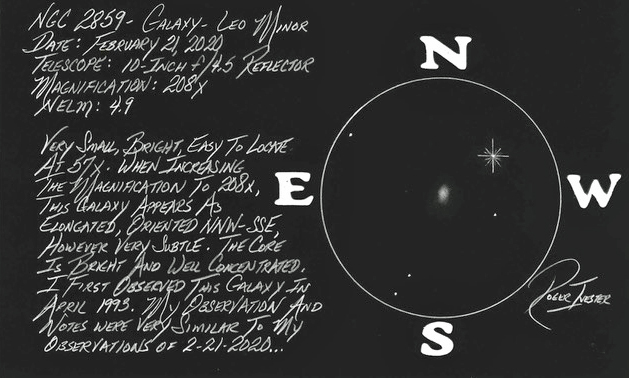 NGC 2859- GALAXY- LEO MINOR
DATE: FEBRUARY 21, 2020
TELESCOPE: 10-INCH f/4.5 REFLECTOR
MAGNIFICATION: 208X
NELM: 4.9
VERY SMALL, BRIGHT, EASY TO LOCATE
AT 57X. WHEN INCREASING
THE MAGNIFICATION TO 208X,
THIS GALAXY APPEARS AS
ELONGATED, ORIENTED NNW-SSE,
HOWEVER VERY SUBTLE. THE CORE
IS BRIGHT AND WELL CONCENTRATED.
I FIRST OBSERVED THIS GALAXY IN
APRIL 1993. MY OBSERVATION AND
NOTES WERE VERY SIMILAR TO MY
OBSERVATIONS OF 2-21-2020...
N
E
W
S
ROGER IVESTER